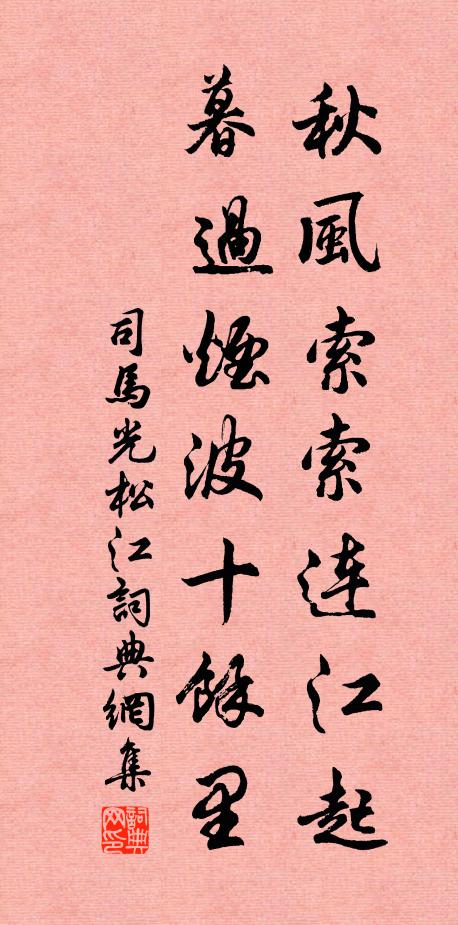 秋風索索連江起
暮過煙波十餘里
司馬光松江詞典網集
詞典网印